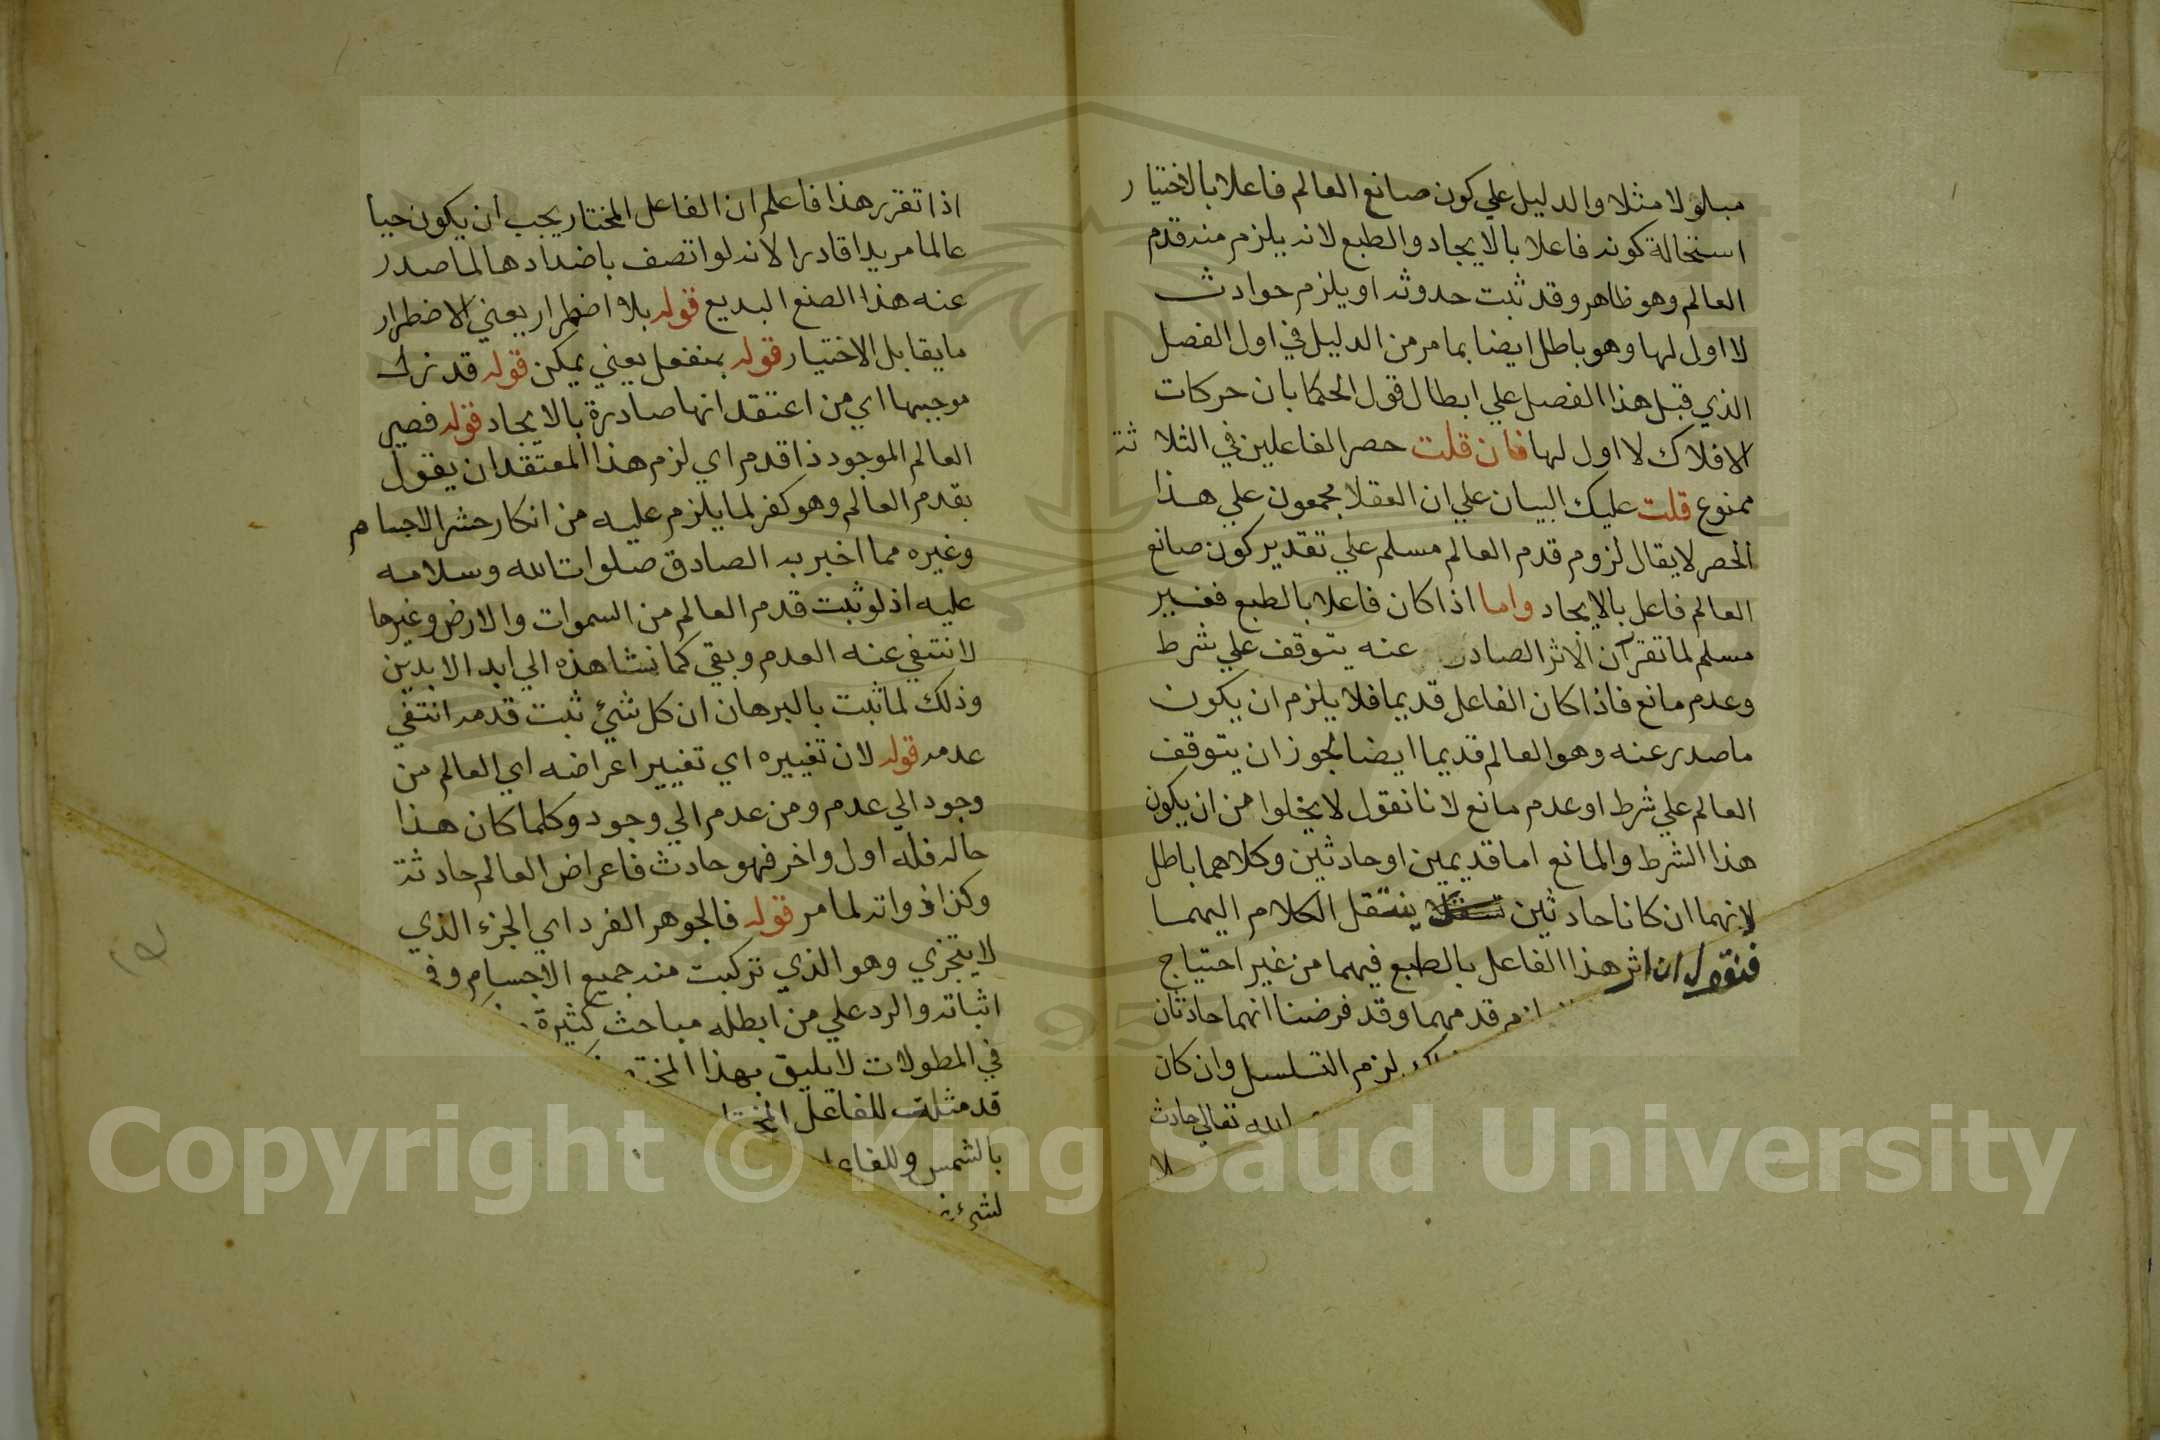 مبلولا مثلا والدليل علي كون صانع العالم فاعلا بالاختيار
استحالة كونه فاعلا بالايجاد والطبع لانه يلزم منه قدم
العالم وهو ظاهر وقد ثبت حدوثه او يلزم حوادث
لا اول لها وهو باطل ايضا بما مر من الدليل في اول الفصل
الذي قبل هذا الفصل علي ابطال قول الحكما بان حركات
الافلاك لا اول لها فان قلت حصر الفاعلين في الثلاثة
ممنوع قلت عليك البيان علي ان العقلا مجمعون علي هذا
الحصر لا يقال لزوم قدم العالم مسلم علي تقدير كون صانع
العالم فاعل بالايجاد واما اذا كان فاعلا بالطبع فغير
مسلم لما تقرر ان الاثر الصادر عنه يتوقف علي شرط
وعدم مانع فاذا كان الفاعل قديما فلا يلزم ان يكون
ما صدر عنه وهو العالم قديما ايضا لجواز ان يتوقف
العالم علي شرط او عدم مانع لانا نقول لا يخلوا من ان يكون
هذا الشرط والمانع اما قديمين او حادثين وكلاهما باطل
لانهما ان كانا حادثين ينتقل الكلام اليهما
فنقول ان اثر هذا الفاعل بالطبع فيهما من غير احتياج
قدمهما وقد فرضنا انهما حادثان
لزم التسلسل وان كان
الله تعالي حادث
لا
اذا تقرر هذا فاعلم ان الفاعل المختار يجب ان يكون حيا
عالما مريدا قادرا لانه لو اتصف باضدادها لما صدر
عنه هذا الصنع البديع قوله بلا اضطرار يعني الاضطرار
ما يقابل الاختيار قوله بمنفعل يعني يمكن قوله قد نزك
موجبها اي من اعتقد انها صادرة بالايجاد قوله فصير
العالم الموجود ذا قدم اي لزم هذا المعتقد ان يقول
بقدم العالم وهو كفر لما يلزم عليه من انكار حشر الاجسام
وغيره مما اخبر به الصادق صلوات الله وسلامه
عليه اذ لو ثبت قدم العالم من السموات والارض وغيرها
لانتفي عنه العدم وبقي كما نشاهذه الي ابد الابدين
وذلك لما ثبت بالبرهان ان كل شيئ ثبت قدمه انتفي
عدمه قوله لان تغييره اي تغيير اعراضه اي العالم من
وجود الي عدم ومن عدم الي وجود وكلما كان هذا
حاله فله اول واخر فهو حادث فاعراض العالم حادثة
وكذا ذواته لما مر قوله فالجوهر الفرد اي الجزء الذي
لا يتجزي وهو الذي تركبت منه جميع الاجسام وفي
اثباته والرد علي من ابطله مباحث كثيرة
في المطولات لا يليق بهذا
قد مثلت للفاعل
بالشمس وللفاعل
لشيء
Copyright © King Saud University